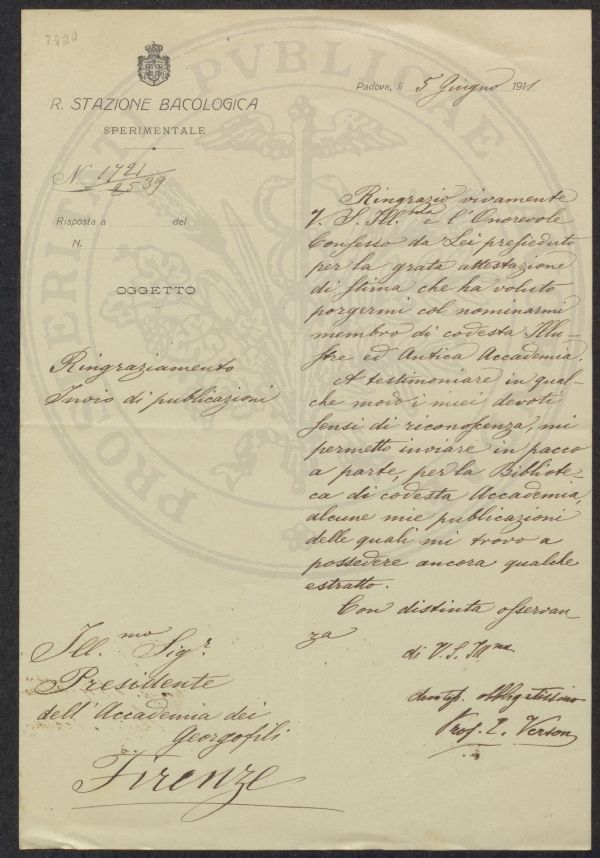 7899
Padova, li 5 Giugno 1911
R. STAZIONE BACOLOGICA
SPERIMENTALE
N 1721
2539
Risposta a del
N.
OGGETTO
Ringraziamento
Invio di publicazioni
Ringrazio vivamente
V. S. Ill. e l'Onorevole
Consesso da Lei presieduto
per la grata attestazione
di stima che ha voluto
porgermi col nominarmi
membro di codesta Illu-
stre ed Antica Accademia.
A testimoniare in qual-
che modo i miei devoti
sensi di riconoscenza, mi
permetto inviare in pacco
a parte, per la Bibliote-
ca di codesta Accademia,
alcune mie publicazioni
delle quali mi trovo a
possedere ancora qualche
estratto.
Con distinta osservan-
za
di V. S. Ill.ma
devotss. obbligatissimo
Prof. E. Verson
Ill.mo Sigr.
Presidente
dell'Accademia dei
Georgofili
Firenze
PROSPERITATI PUBLICAE